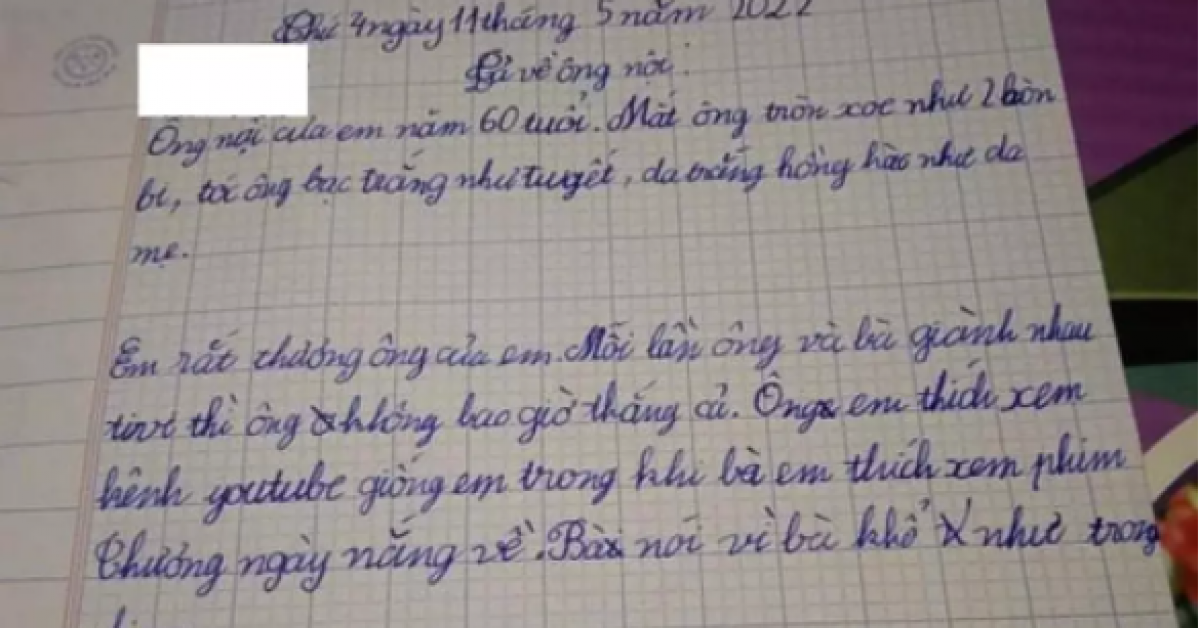 Thứ 4 ngày 11 tháng 5 năm 2022
Tả về ông nội.
Ông nội của em năm 60 tuổi. Mắt ông tròn xoe như 2 hòn
bi, tóc ông bạc trắng như tuyết, da trắng hồng hào như da
mẹ.
Em rất thương ông của em. Mỗi lần ông và bà giành nhau
tivi thì ông không bao giờ thắng cả. Ông em thích xem
kênh youtube giống em trong khi bà em thích xem phim
Thương ngày nắng về. Bà nói vì bà khổ như trong